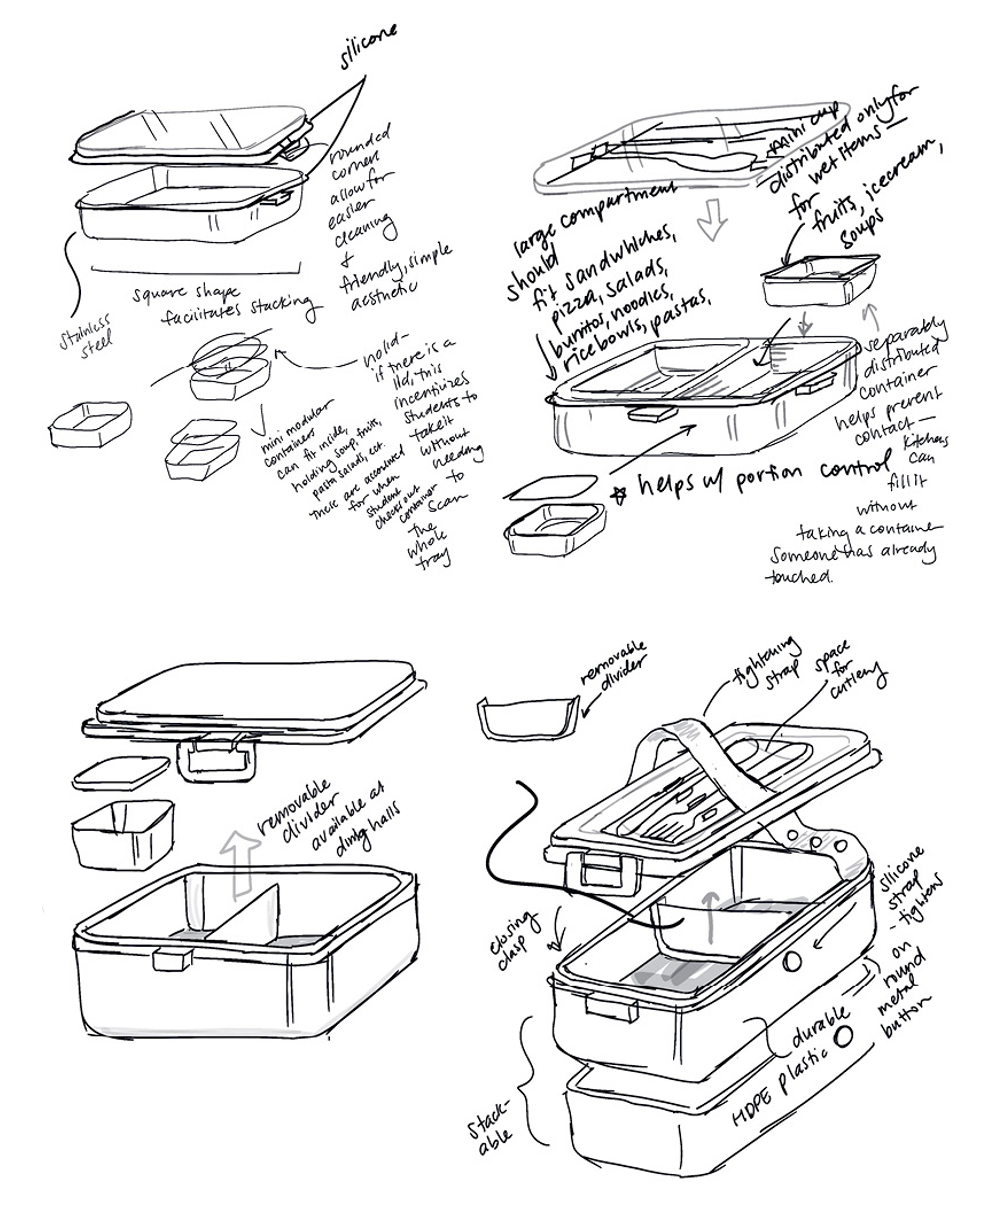 silicone
rounded
corners
allow for
easier
cleaning
+
friendly, simple
aesthetic
square shape
facilitates stacking
stainless
steel
no lid-
if there is a
lid, this
incentivizes
students to
take it
without
needing
to
scan
the
whole
tray
mini modular
containers
can fit inside,
holding soup, fruits,
pasta salads, ect.
these are accounted
for when
student
checks out
container
mini cup
distributed only for
wet items —
for
fruits, icecream,
soups
large compartment
should
fit sandwhiches,
pizza, salads,
burritos, noodles,
rice bowls, pastas,
separably
distributed
container
helps prevent
contact —
kitchens
can
fill it
without
taking a container
someone has already
touched.
helps w/ portion control
removable
divider
available at
dinig halls
removable
divider
tightening
strap
space
for
cutlery
closing
clasp
silicone
strap
- tightens
on
round
metal
button
durable
HDPE plastic
stack-
able